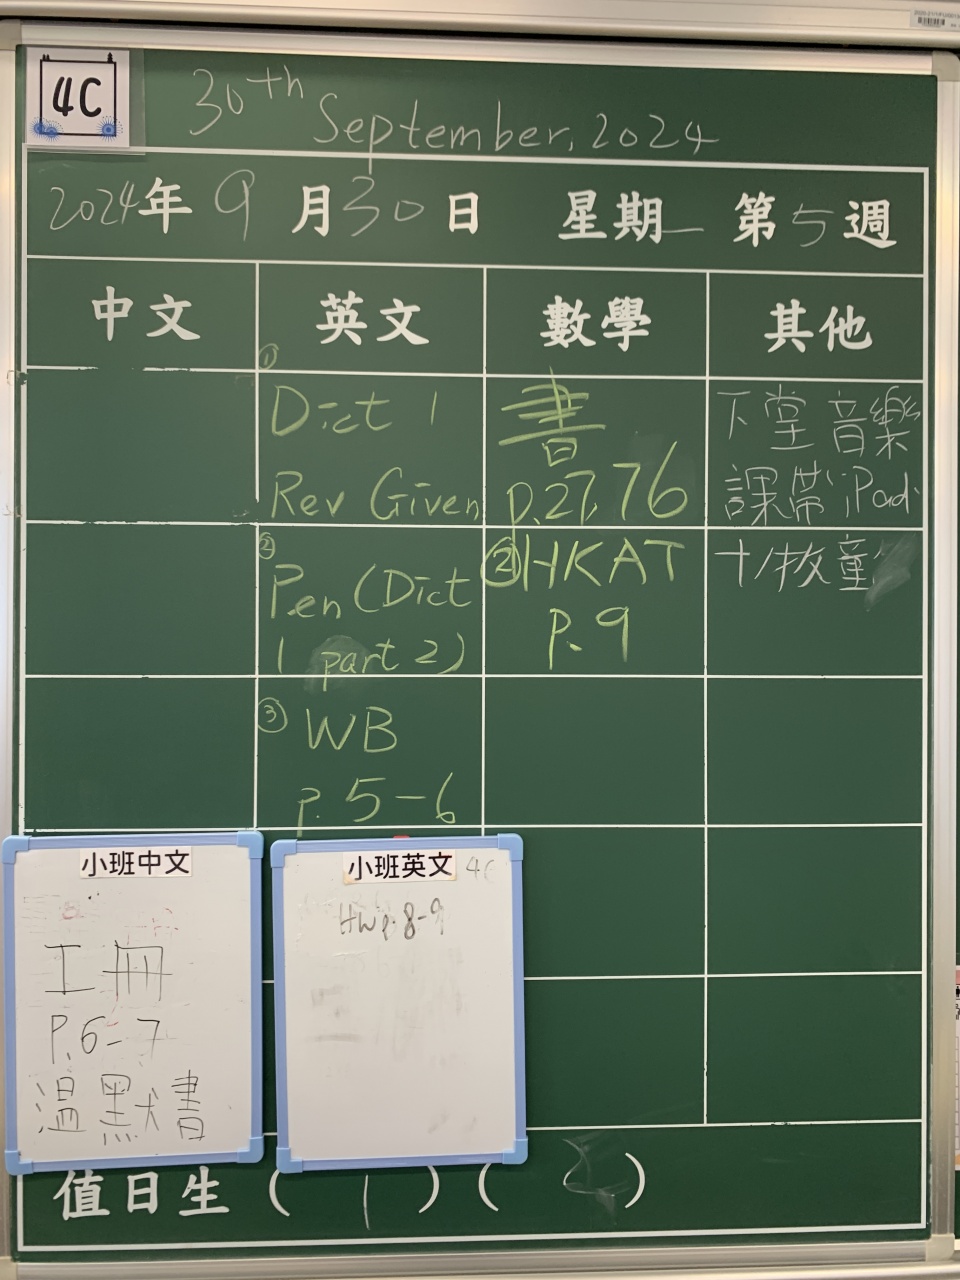 4C
30th September, 2024
2024年9月30日 星期一 第5週
中文 英文 數學 其他
①
Dict 1
Rev Given
②
Pen (Dict
1 part 2)
③ WB
P. 5-6
書
P.27, 76
② HKAT
P. 9
下堂音樂
課帶iPad
小班中文
工冊
P.6-7
溫默書
小班英文 4C
HW p. 8-9
值日生 ( 1 ) ( )